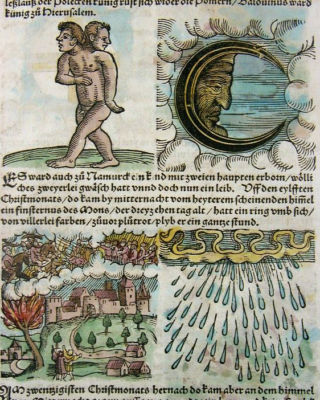 leßlauß der Polecken künig rust sich wider die Pomern / Balduinus ward
künig zů Hierusalem.
ES ward auch zů Namurck ein kind mit zweien haupten erborn / wölli
ches zweyerlei gwäsch hatt vnnd doch nun ein leib. Vff den eylfften
Christmonats / do kam by mitternacht vom heyterem scheinenden himel
ein finsternus des Mons / der dreyzehen tag alt / hatt ein ring vmb sich /
von villerlei farben / zůuor plůtrot / blyb er ein gantze stund.
AM zwentzigisten Christmonats hernach do kam aber an dem himmel